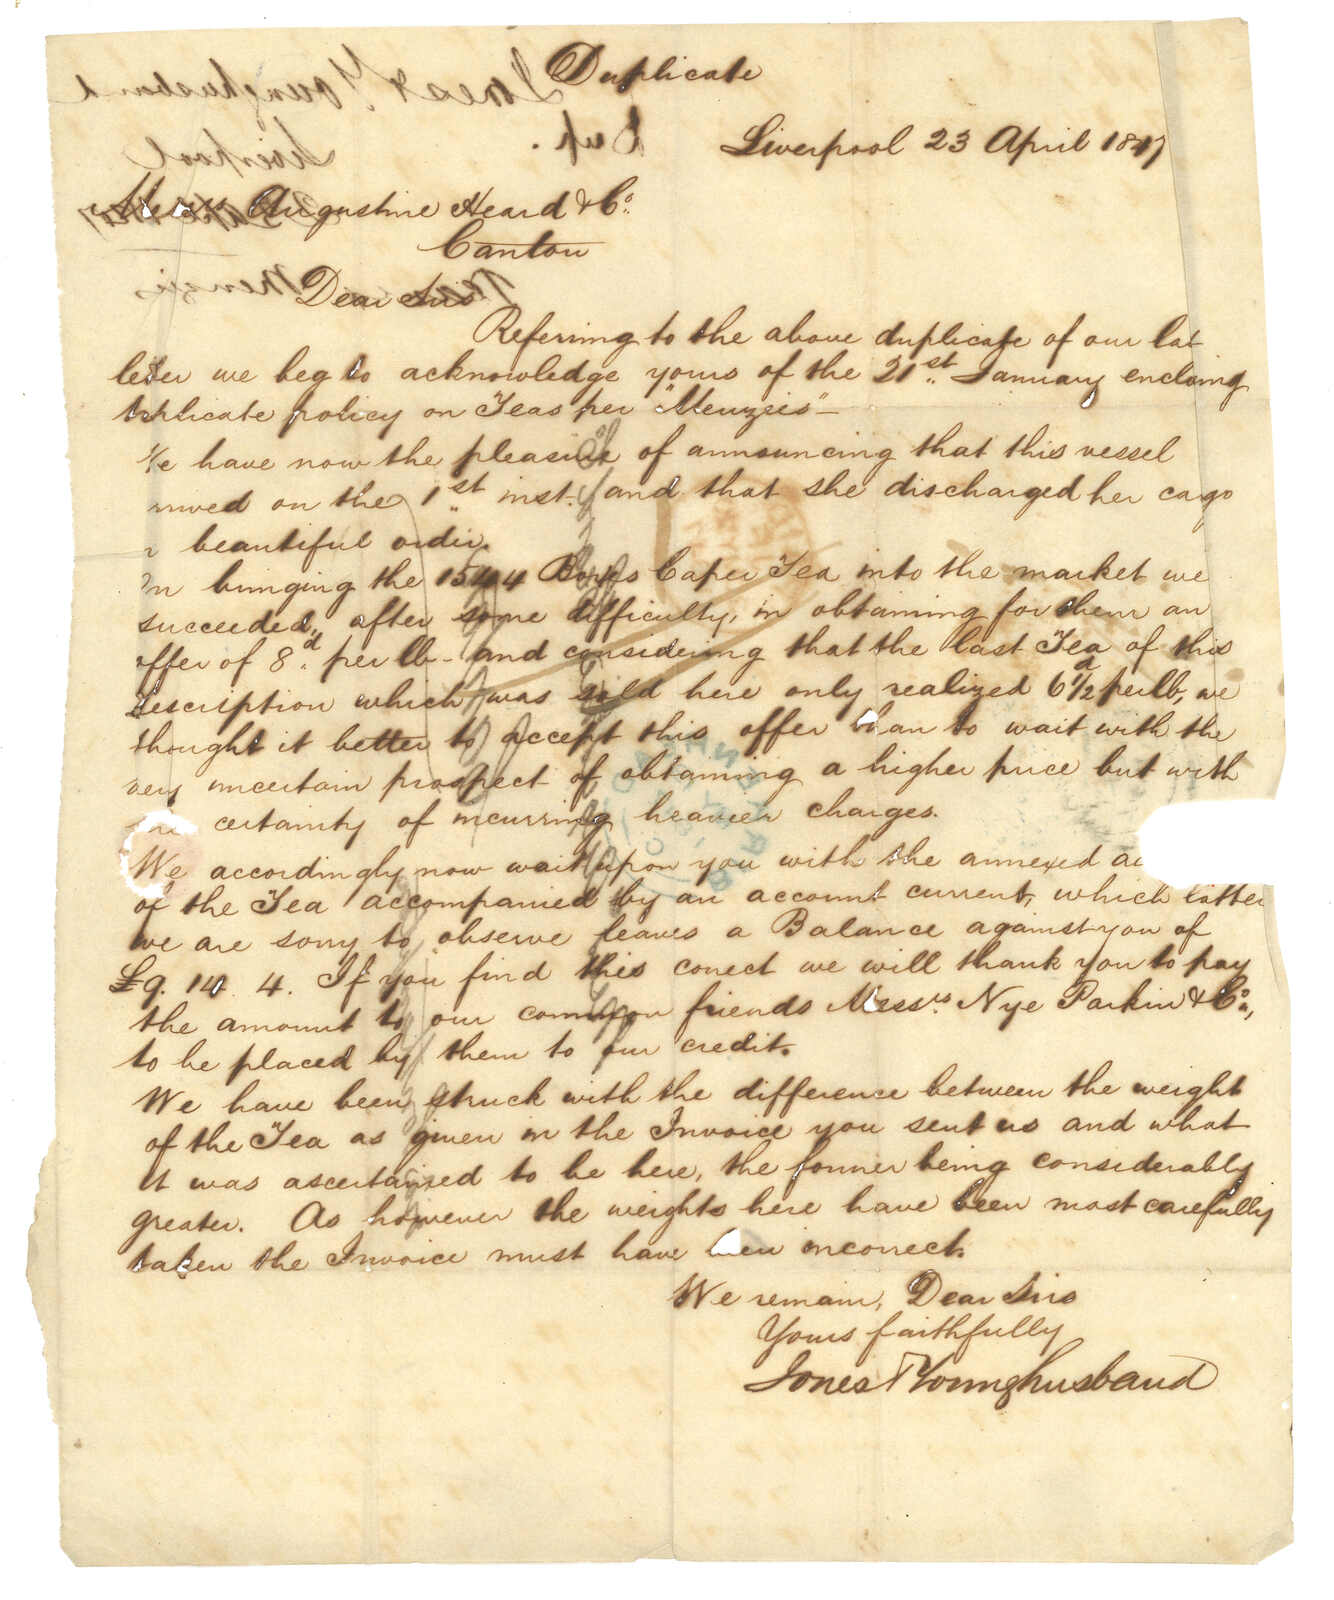 Duplicate
Liverpool 23 April 1847
Messrs Augustine Heard & Co.
Canton
Dear Sirs
Refering to the above duplicate of our last
letter we beg to acknowledge yours of the 21st January enclosing
triplicate policy on Teas per "Menzies" –
We have now the pleasure of announcing that this vessel
rrived on the 1st inst. and that she discharged her cargo
beautiful order.
On bringing the 1544 Boxes Caper Tea into the market we
succeeded, after some difficulty, in obtaining for them an
offer of 8d. per lb – and considering that the last Tea of this
description which was sold here only realized 6½d per lb, we
thought it better to accept this offer than to wait with the
very uncertain prospect of obtaining a higher price but with
the certainty of incurring heavier charges.
We accordingly now wait upon you with the annexed ac
of the Tea accompanied by an account current, which latter
we are sorry to observe leaves a Balance against you of
£9. 14. 4. If you find this correct we will thank you to pay
the amount to our common friends Messrs. Nye Parkin & Co.,
to be placed by them to our credit.
We have been struck with the difference between the weight
of the Tea as given in the Invoice you sent us and what
it was ascertained to be here, the former being considerably
greater. As however the weights here have been most carefully
taken the Invoice must have been incorrect.
We remain, Dear Sirs
Yours faithfully
Jones & Younghusband
Jones & Younghusband
Liverpool
Menzies